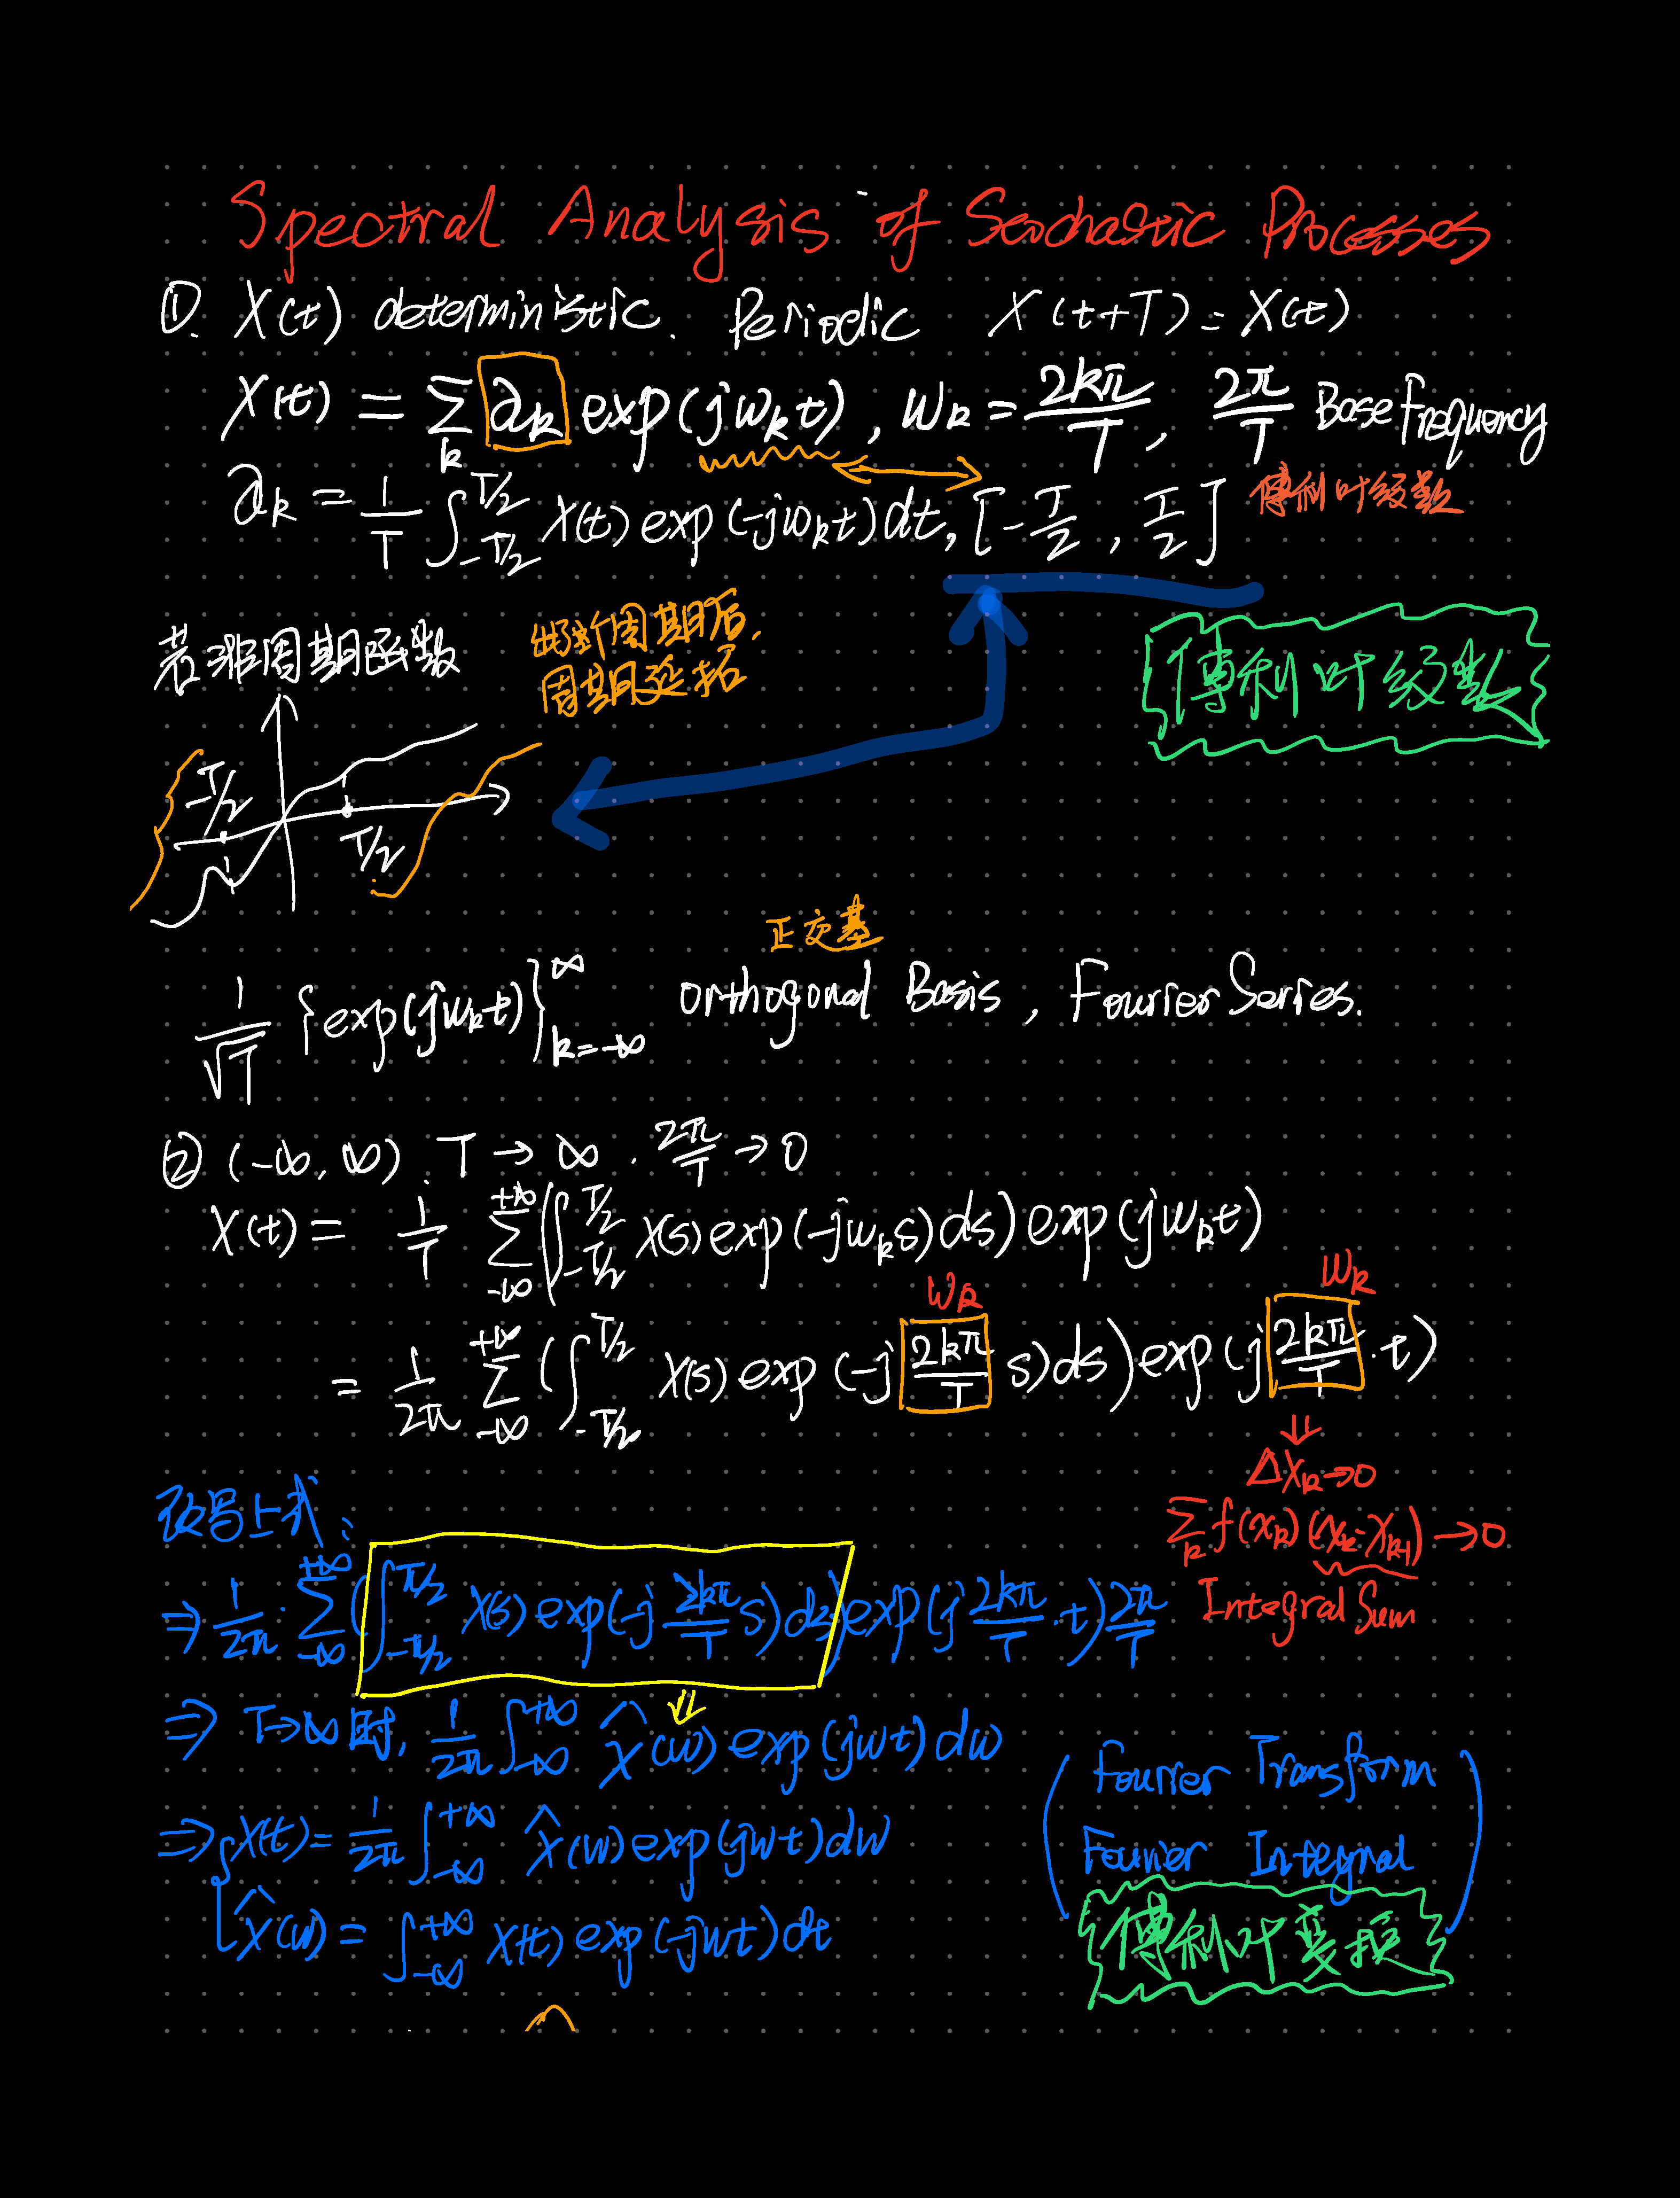 Spectral Analysis of Stochastic Processes
①. X(t) deterministic. Periodic X(t+T) = X(t)
X(t) = ∑_k a_k exp(jω_k t), ω_k = 2kπ/T, 2π/T Base Frequency
a_k = 1/T ∫_{-T/2}^{T/2} X(t) exp(-jω_k t) dt, [-T/2, T/2] 傅利叶级数
若非周期函数
出新周期后,
周期延拓
傅利叶级数
-T/2
T/2
正交基
1/√T {exp(jω_k t)}_{k=-∞}^{∞} Orthogonal Basis, Fourier Series.
② (-∞, ∞). T → ∞. 2π/T → 0
X(t) = 1/T ∑_{-∞}^{+∞} (∫_{-T/2}^{T/2} X(s) exp(-jω_k s) ds) exp(jω_k t)
ω_k ω_k
= 1/2π ∑_{-∞}^{+∞} (∫_{-T/2}^{T/2} X(s) exp(-j 2kπ/T s) ds) exp(j 2kπ/T · t)
⇓
ΔX_k → 0
∑_k f(x_k) (x_k - x_{k-1}) → 0
Integral Sum
改写上式:
⇒ 1/2π · ∑_{-∞}^{+∞} (∫_{-T/2}^{T/2} X(s) exp(-j 2kπ/T s) ds) exp(j 2kπ/T · t) 2π/T
⇓
⇒ T→∞ 时, 1/2π ∫_{-∞}^{+∞} X̂(ω) exp(jωt) dω
⇒ { X(t) = 1/2π ∫_{-∞}^{+∞} X̂(ω) exp(jωt) dω
X̂(ω) = ∫_{-∞}^{+∞} X(t) exp(-jωt) dt
( Fourier Transform
Fourier Integral )
傅利叶变换